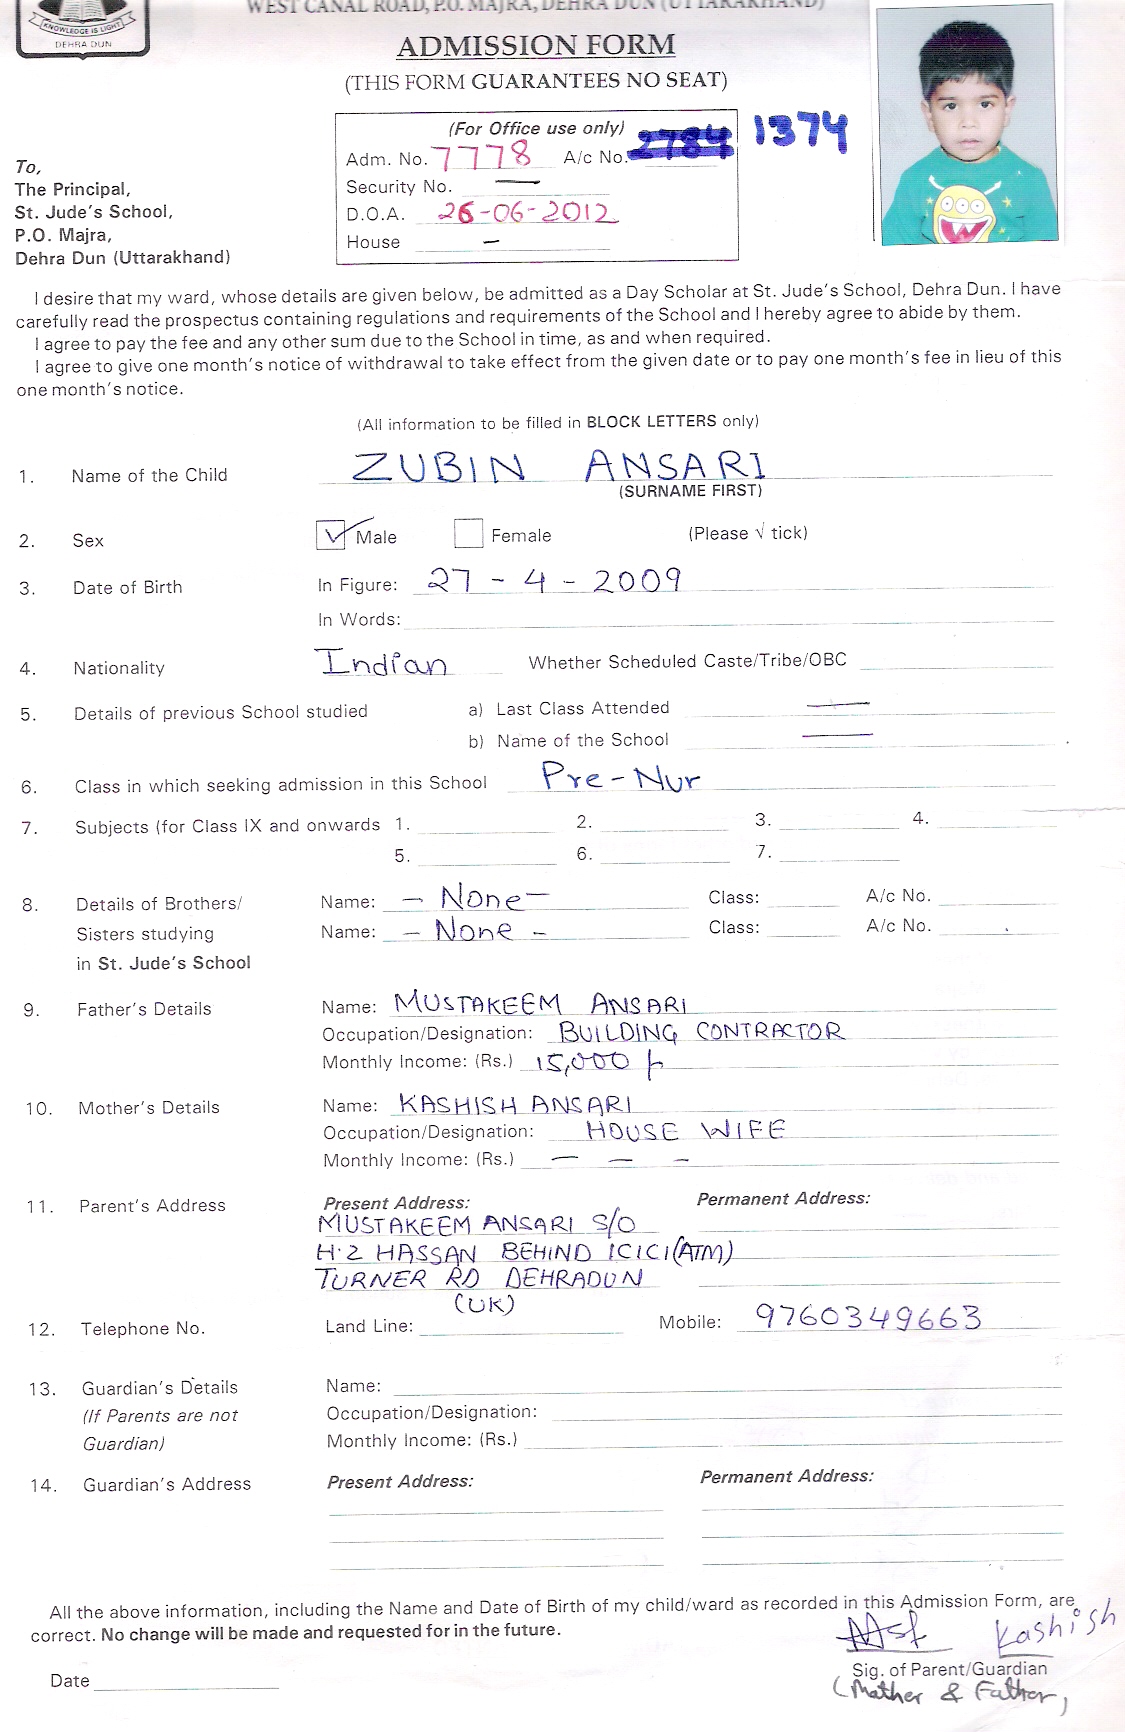 KNOWLEDGE IS LIGHT
DEHRA DUN
WEST CANAL ROAD, P.O. MAJRA, DEHRA DUN (UTTARAKHAND)
ADMISSION FORM
(THIS FORM GUARANTEES NO SEAT)
(For Office use only)
Adm. No. 7778 A/c No. 2784 1374
Security No. —
D.O.A. 26-06-2012
House –
To,
The Principal,
St. Jude's School,
P.O. Majra,
Dehra Dun (Uttarakhand)
I desire that my ward, whose details are given below, be admitted as a Day Scholar at St. Jude's School, Dehra Dun. I have
carefully read the prospectus containing regulations and requirements of the School and I hereby agree to abide by them.
I agree to pay the fee and any other sum due to the School in time, as and when required.
I agree to give one month's notice of withdrawal to take effect from the given date or to pay one month's fee in lieu of this
one month's notice.
(All information to be filled in BLOCK LETTERS only)
1. Name of the Child ZUBIN ANSARI
(SURNAME FIRST)
2. Sex ✓ Male Female (Please √ tick)
3. Date of Birth In Figure: 27 - 4 - 2009
In Words:
4. Nationality Indian Whether Scheduled Caste/Tribe/OBC
5. Details of previous School studied a) Last Class Attended —
b) Name of the School —
6. Class in which seeking admission in this School Pre-Nur
7. Subjects (for Class IX and onwards 1. 2. 3. 4.
5. 6. 7.
8. Details of Brothers/ Name: - None - Class: A/c No.
Sisters studying Name: - None - Class: A/c No.
in St. Jude's School
9. Father's Details Name: MUSTAKEEM ANSARI
Occupation/Designation: BUILDING CONTRACTOR
Monthly Income: (Rs.) 15,000/-
10. Mother's Details Name: KASHISH ANSARI
Occupation/Designation: HOUSE WIFE
Monthly Income: (Rs.) — — –
11. Parent's Address Present Address: Permanent Address:
MUSTAKEEM ANSARI S/O
H.Z HASSAN BEHIND ICICI(ATM)
TURNER RD DEHRADUN
(UK)
12. Telephone No. Land Line: Mobile: 9760349663
13. Guardian's Details Name:
(If Parents are not Occupation/Designation:
Guardian) Monthly Income: (Rs.)
14. Guardian's Address Present Address: Permanent Address:
All the above information, including the Name and Date of Birth of my child/ward as recorded in this Admission Form, are
correct. No change will be made and requested for in the future.
Kashish
Date Sig. of Parent/Guardian
(Mather & Father)